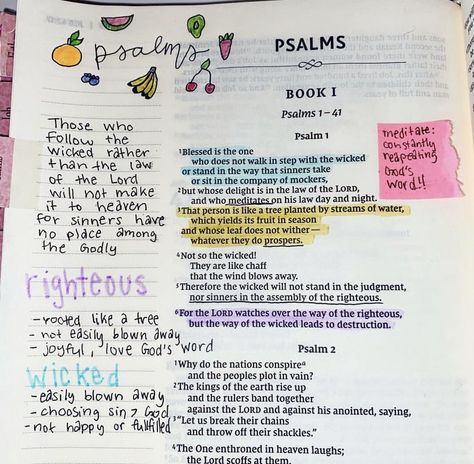 psalms
PSALMS
BOOK I
Psalms 1–41
Psalm 1
Those who
follow the
wicked rather
than the law
of the Lord
will not make
it to heaven
for sinners have
no place among
the Godly
righteous
- rooted like a tree
- not easily blown away
- joyful, love God's word
wicked
- easily blown away
- choosing sin > God
- not happy or fullfilled
1Blessed is the one
who does not walk in step with the wicked
or stand in the way that sinners take
or sit in the company of mockers,
2but whose delight is in the law of the LORD,
and who meditates on his law day and night.
3That person is like a tree planted by streams of water,
which yields its fruit in season
and whose leaf does not wither—
whatever they do prospers.
4Not so the wicked!
They are like chaff
that the wind blows away.
5Therefore the wicked will not stand in the judgment,
nor sinners in the assembly of the righteous.
6For the LORD watches over the way of the righteous,
but the way of the wicked leads to destruction.
meditate:
constantly
reapeating
God's
word!!
Psalm 2
1Why do the nations conspirea
and the peoples plot in vain?
2The kings of the earth rise up
and the rulers band together
against the LORD and against his anointed, saying,
3"Let us break their chains
and throw off their shackles."
4The One enthroned in heaven laughs;
the Lord scoffs at them.